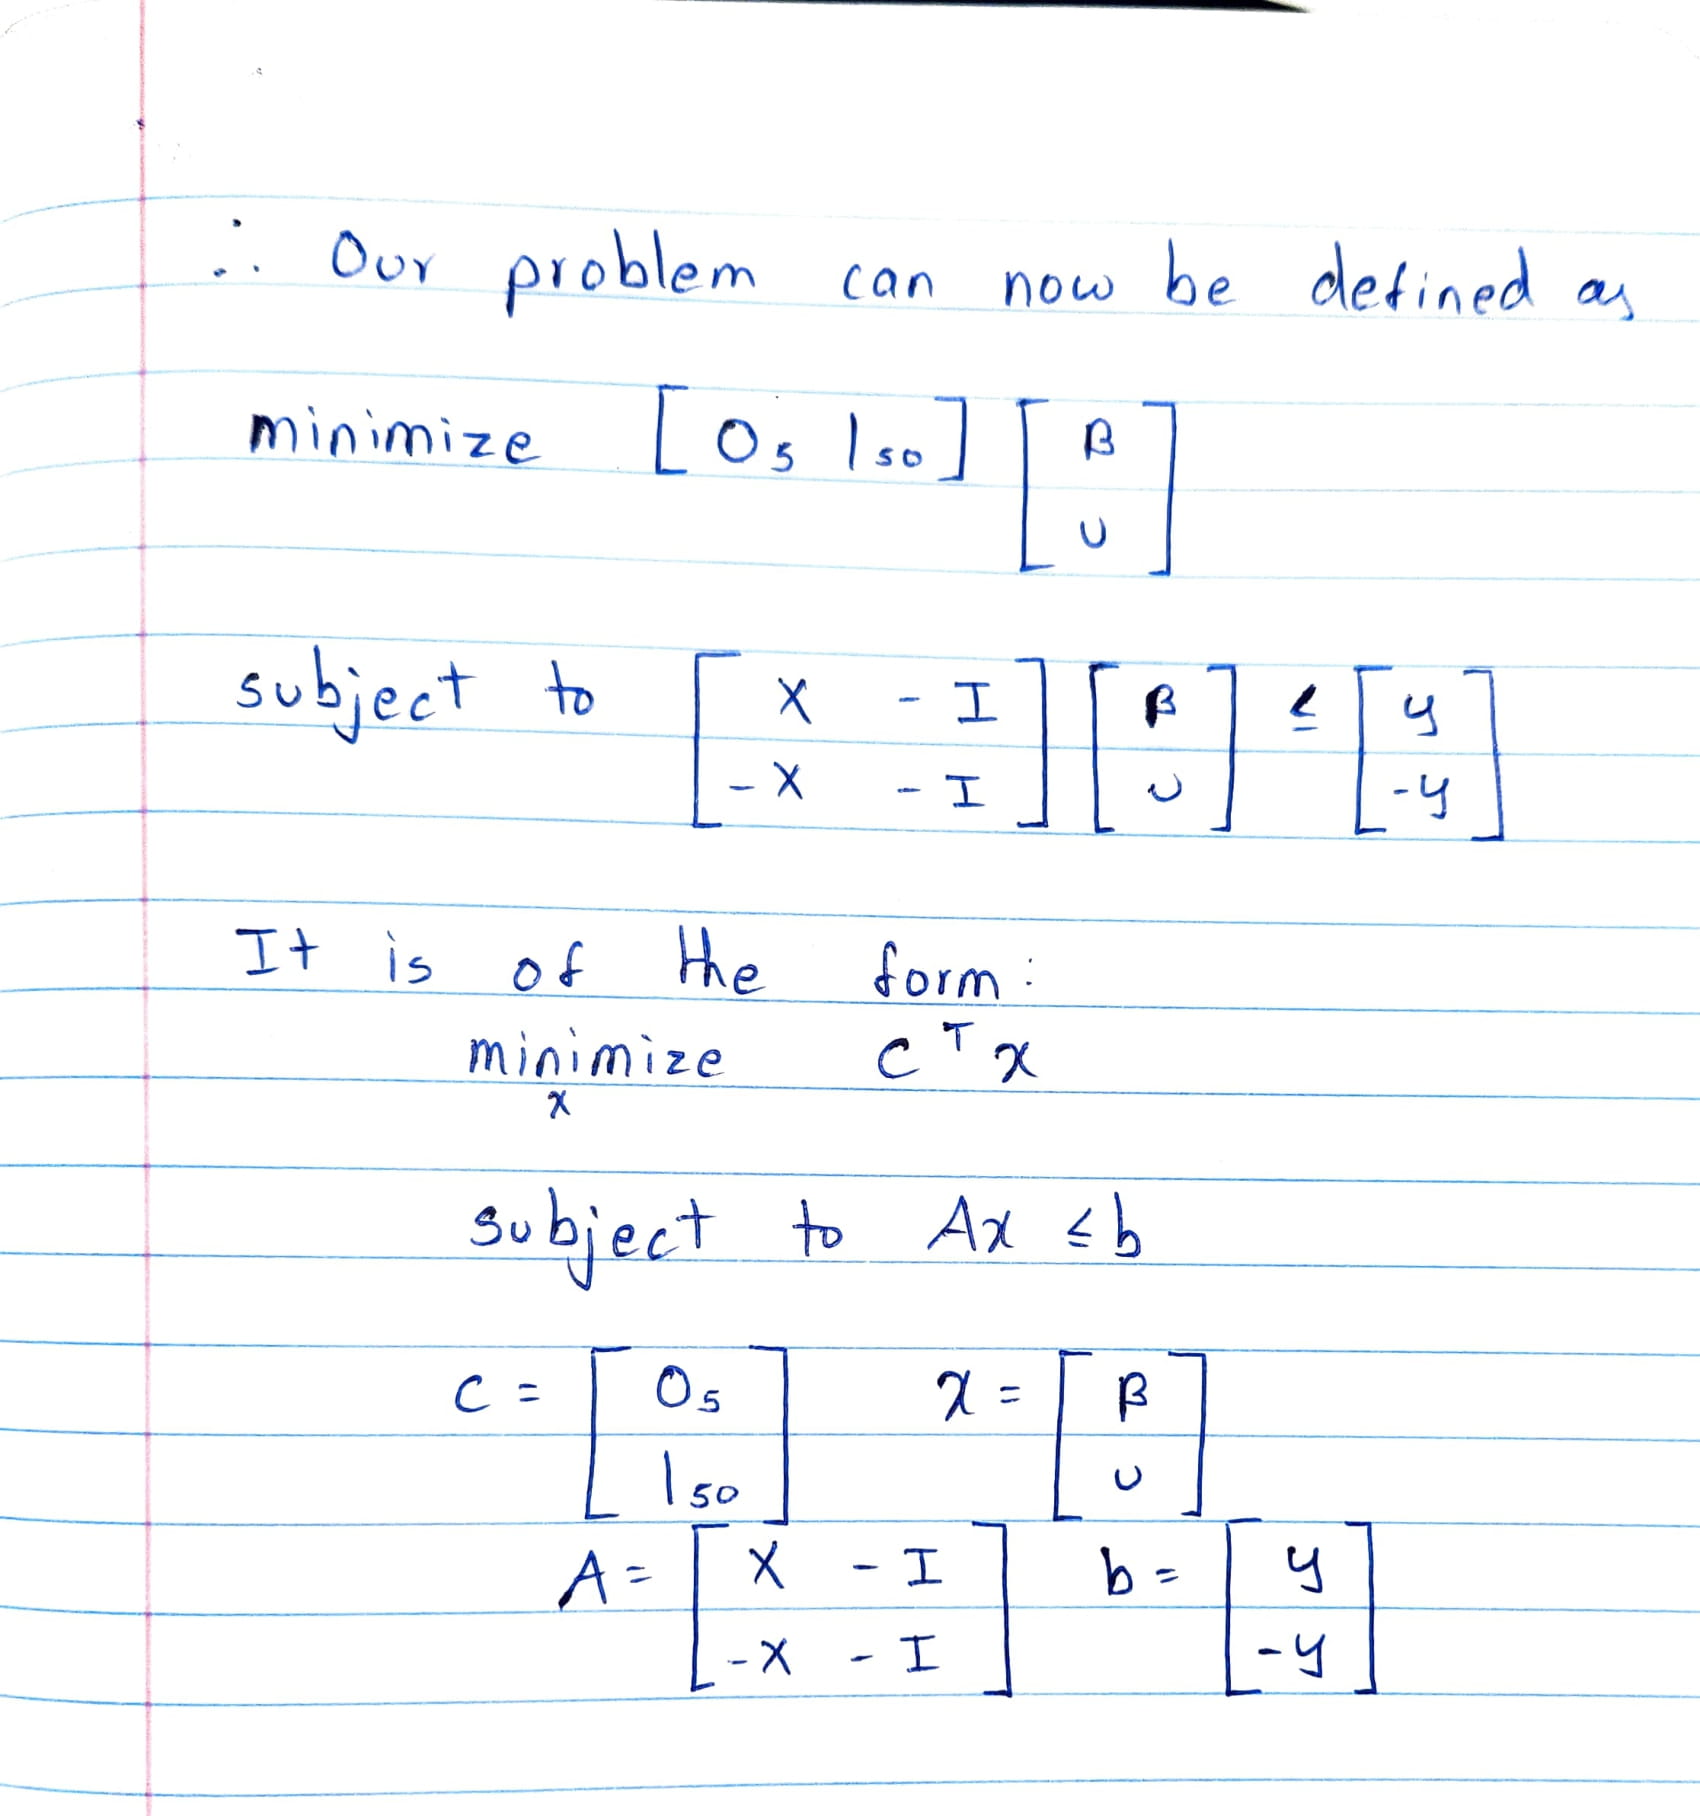 ∴ Our problem can now be defined as
minimize [ 0₅ 1₅₀ ] [ β
υ ]
subject to [ X - I
-X - I ] [ β
υ ] ≤ [ y
-y ]
It is of the form:
minimize cᵀx
x
subject to Ax ≤ b
c = [ 0₅
1₅₀ ] x = [ β
υ ]
A = [ X - I
-X - I ] b = [ y
-y ]